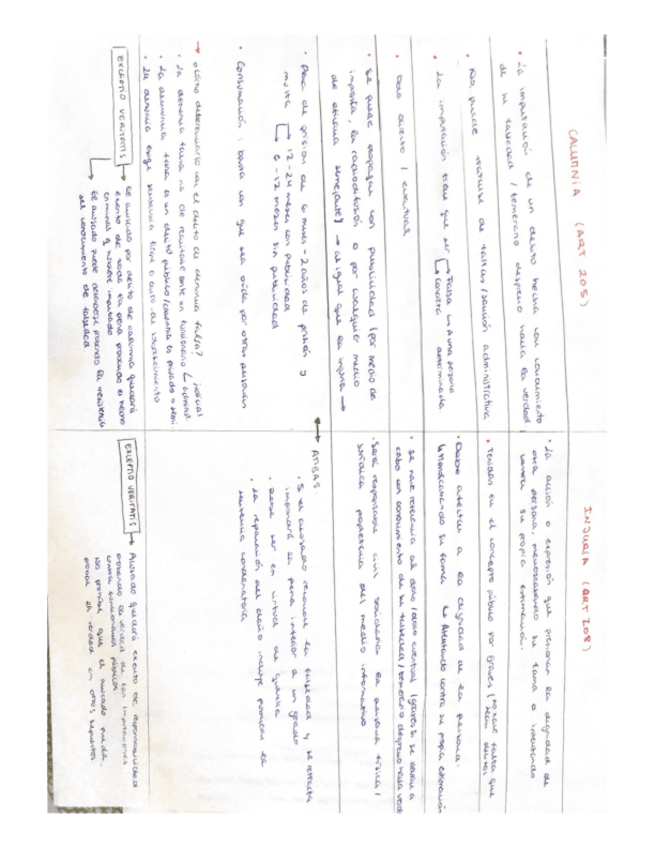 CALUMNIA (ART 205)
• La imputación de un delito hecha con conocimiento
de su falsedad / temerario desprecio hacia la verdad
• No puede tratarse de faltas / sanción administrativa
• La imputación tiene que ser → Falsa → A una persona
→ Concreta determinada
• Dolo directo / eventual
• Se puede propagar con publicidad (por medio de
imprenta, la radiodifusión o por cualquier medio
de eficacia semejante) → al igual que la injuria →
• Pena de prisión de 6 meses - 2 años de prisión y
multa → 12-24 meses con publicidad
→ 6-12 meses sin publicidad
• Consumación: basta con que sea oída por otras personas
→ cómo determinarlo con el delito de denuncia falsa?
• La denuncia falsa ha de realizarse ante un funcionario judicial
• La denuncia falsa es un delito público / calumnia es privado o semi
• La denuncia exige sentencia firme o auto de sobreseimiento
EXCEPTIO VERITATIS → el acusado por delito de calumnia quedará
exento de toda pena probando el hecho
criminal q hubiere imputado
→ El acusado puede defenderse probando la inexistencia
del conocimiento de falsedad
INJURIA (ART 208)
• La acción o expresión que lesionan la dignidad de
otra persona, menoscabando su fama o
contra su propia estimación.
• Tenidas en el concepto público por graves (no hace falta que
sean delitos
• Debe afectar a la dignidad de la persona.
su fama → Atentando contra su propia estimación
• Se hace referencia al dolo / dolo eventual (graves si se llevan a
cabo con conocimiento de su falsedad / temerario desprecio hacia verd
• Será responsable civil solidaria la persona física /
jurídica propietaria del medio informativo
→ AMBAS
• Si el acusado reconoce la falsedad y se retracta
impondrá la pena inferior a un grado
• Debe ser en virtud de querella
• La reparación del daño incluye publicar la
sentencia condenatoria
EXCEPTIO VERITATIS → Acusado quedará exento de responsabilidad
probando la verdad de las imputaciones
contra funcionarios públicos
No posible que el acusado pueda
probar la verdad en otros supuestos.